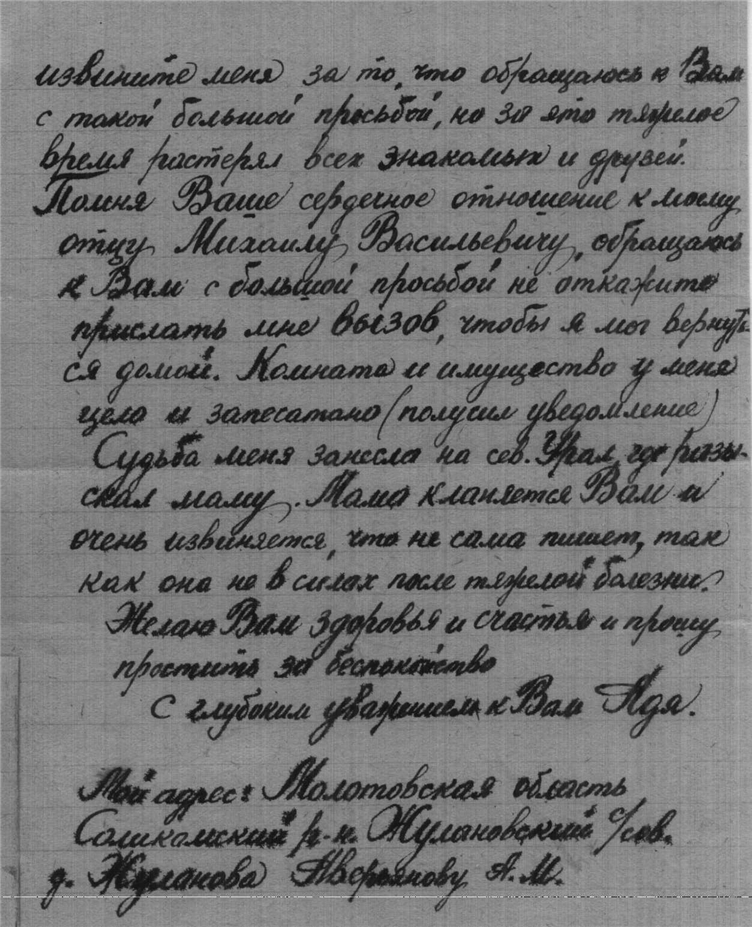 извините меня за то, что обращаюсь к Вам
с такой большой просьбой, но за это тяжелое
время растерял всех знакомых и друзей.
Помня Ваше сердечное отношение к моему
отцу Михаилу Васильевичу, обращаюсь
к Вам с большой просьбой не откажите
прислать мне вызов, чтобы я мог вернуть-
ся домой. Комната и имущество у меня
цело и запечатано (получил уведомление)
Судьба меня занесла на сев. Урал, где разы-
скал маму. Мама кланяется Вам и
очень извиняется, что не сама пишет, так
как она не в силах после тяжелой болезни.
Желаю Вам здоровья и счастья и прошу
простить за беспокойство
С глубоким уважением к Вам Адя.
Мой адрес: Молотовская область
Соликамский р-н. Жулановский с/сов.
д. Жуланова Аверьянову А.М.